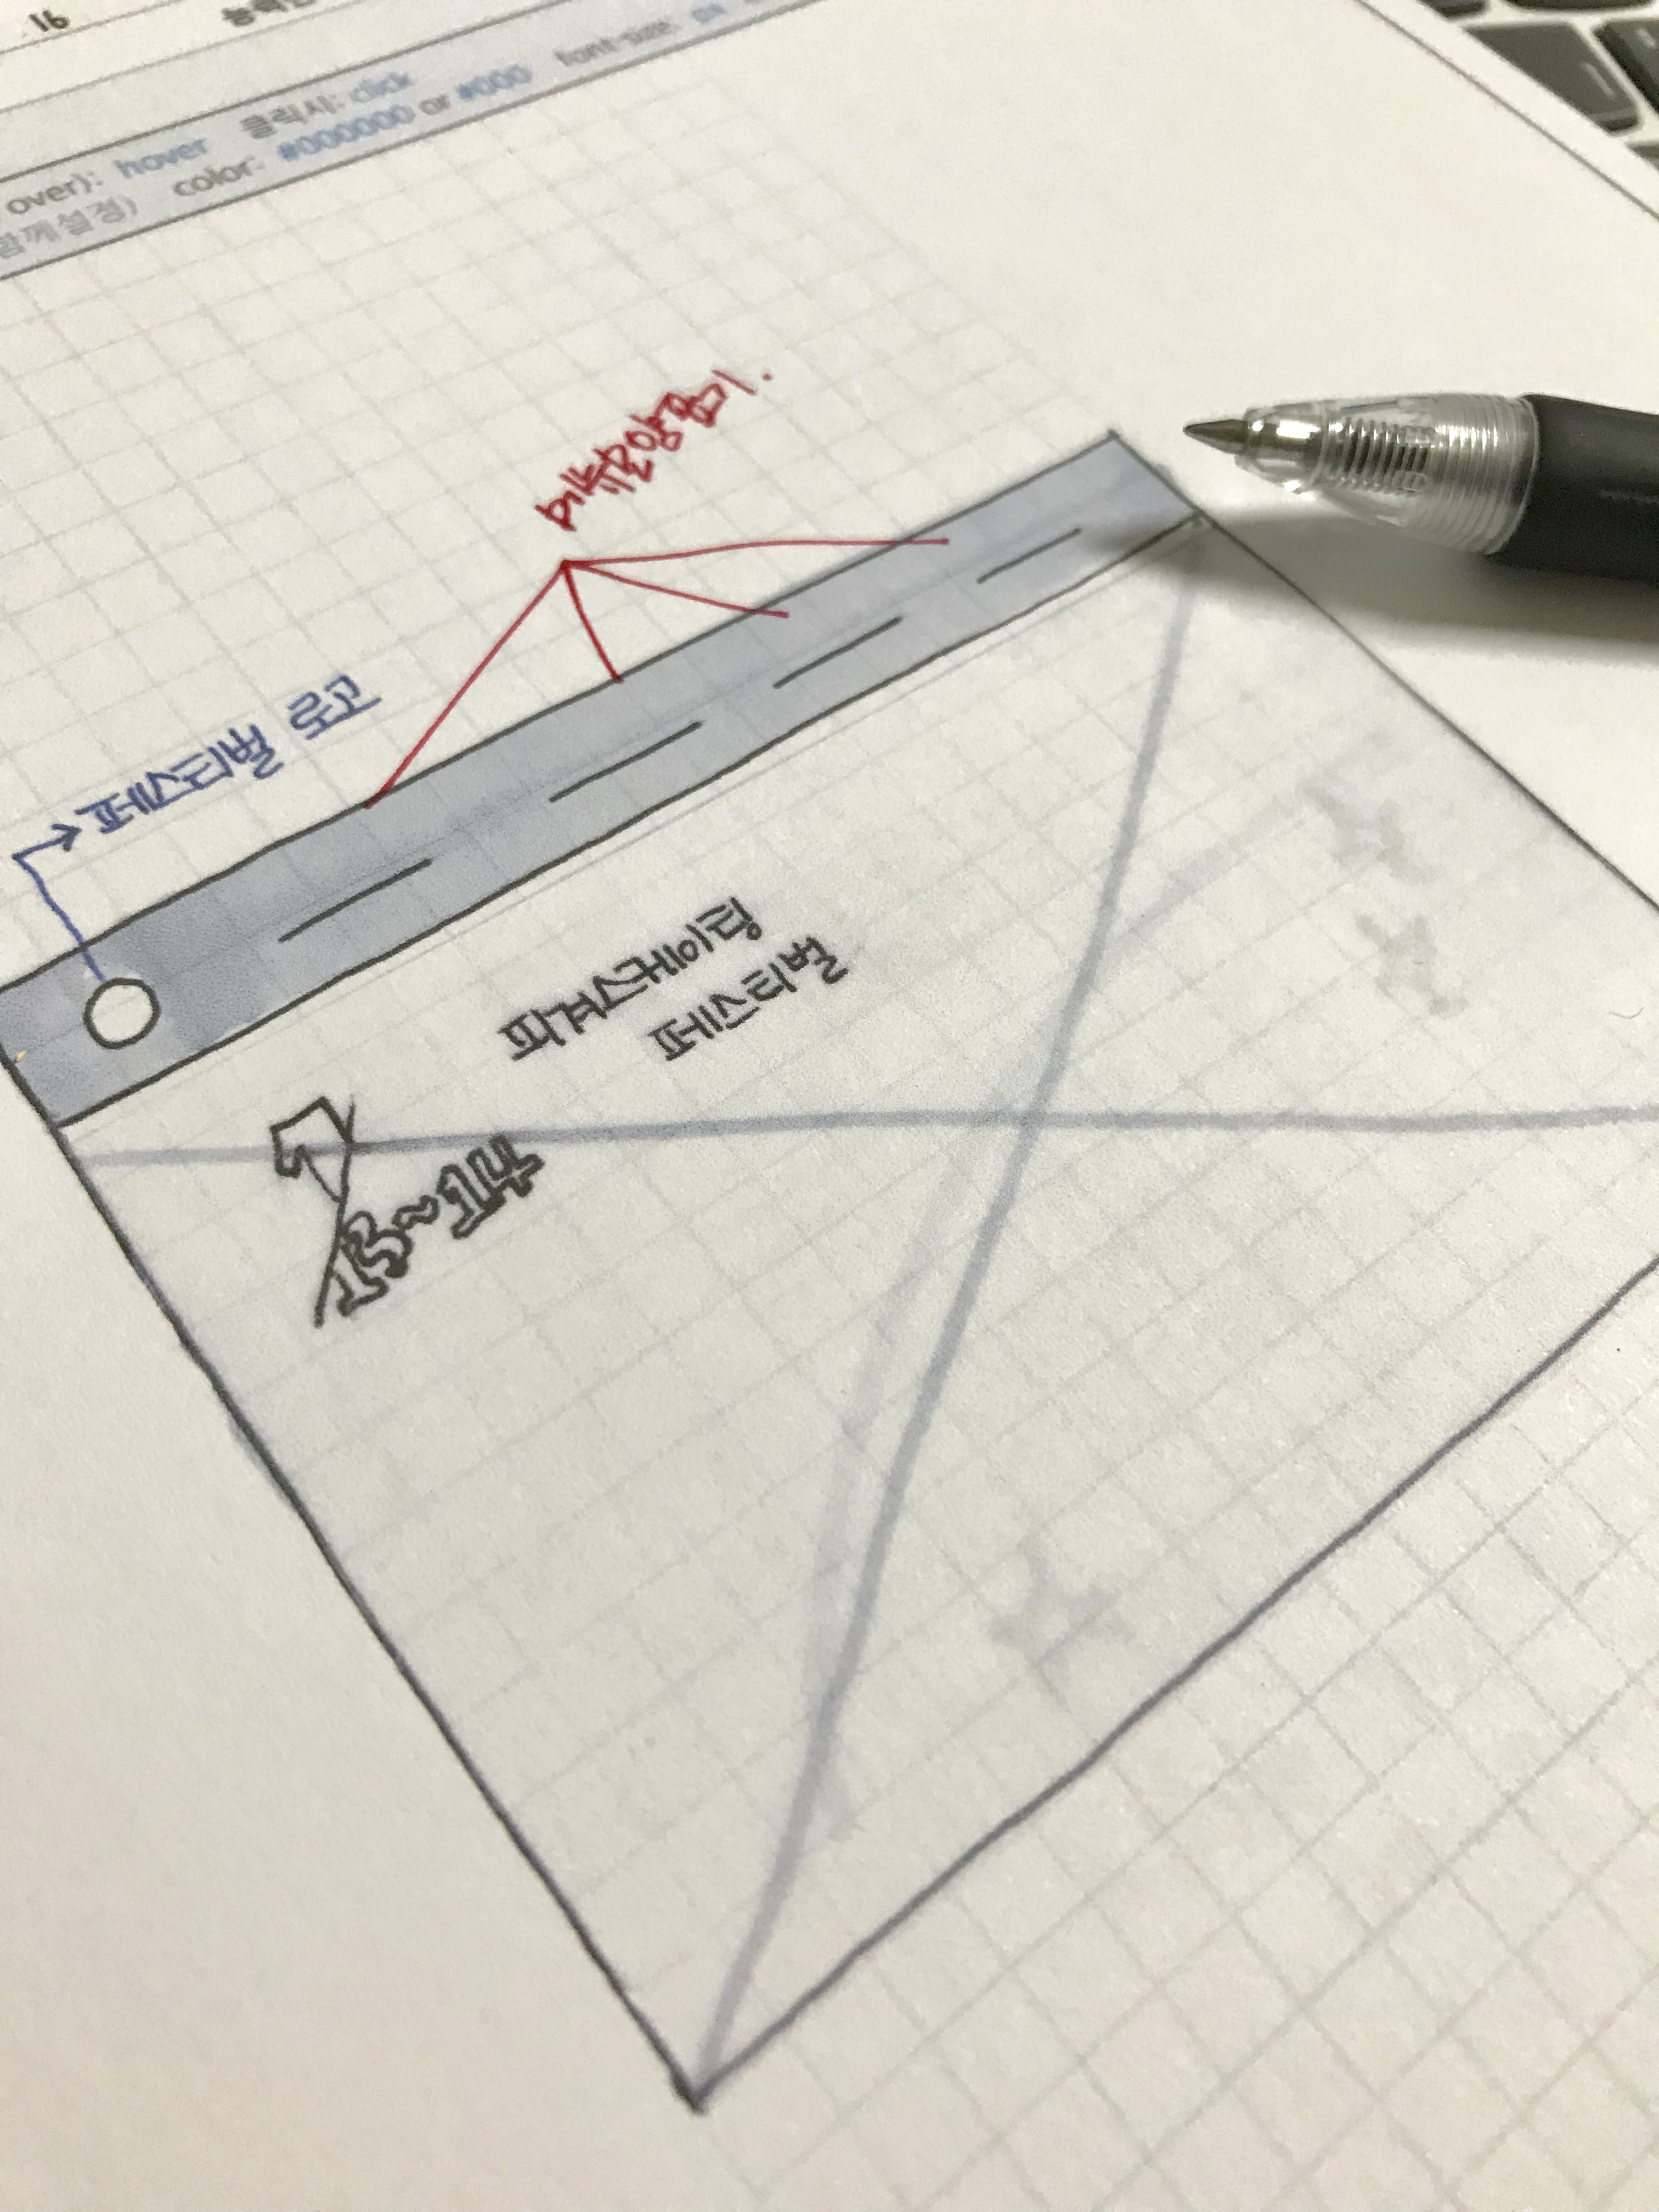 16
over): hover 클릭시: click
함께설정) color: #000000 or #000 font-size:
메뉴모양꾸미기.
→페스티벌 로고
피겨스케이팅
페스티벌
13~14